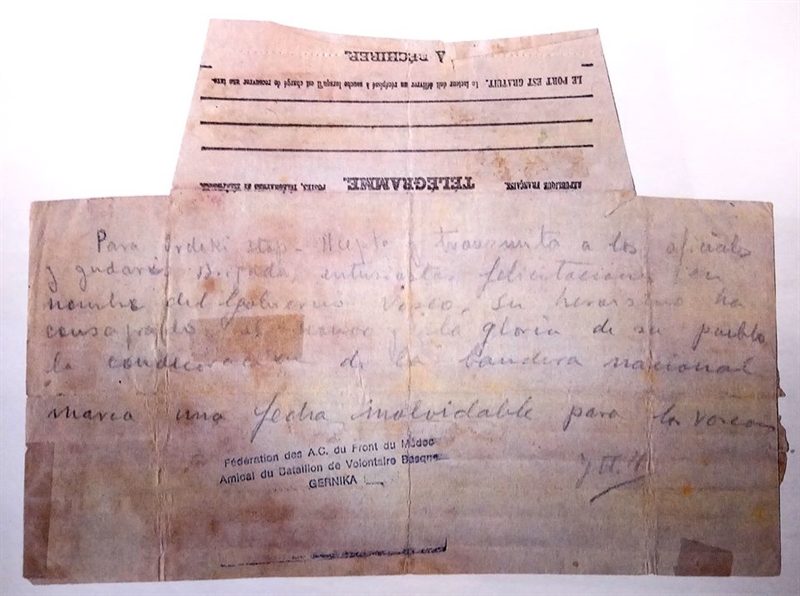 A DÉCHIRER.
LE PORT EST GRATUIT. Le facteur doit délivrer un récépissé à souche lorsqu'il est chargé de recouvrer une taxe.
RÉPUBLIQUE FRANÇAISE. TÉLÉGRAMME. POSTES, TÉLÉGRAPHES ET TÉLÉPHONES.
Para Ordoki stop - Acepte y transmita a los oficiales
y gudaris Brigada, entusiastas felicitaciones en
nombre del Gobierno Vasco, su heroismo ha
consagrado el honor y la gloria de su pueblo
la condecoracion de la bandera nacional
marca una fecha inolvidable para los vascos
Fédération des A.C. du Front du Médoc
Amical du Bataillon de Volontaire Basque
GERNIKA